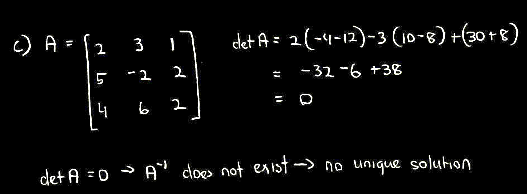 c) A = [ 2 3 1 det A = 2(-4-12)-3(10-8)+(30+8)
5 -2 2 = -32 -6 +38
4 6 2 ] = 0
det A = 0 → A⁻¹ does not exist → no unique solution